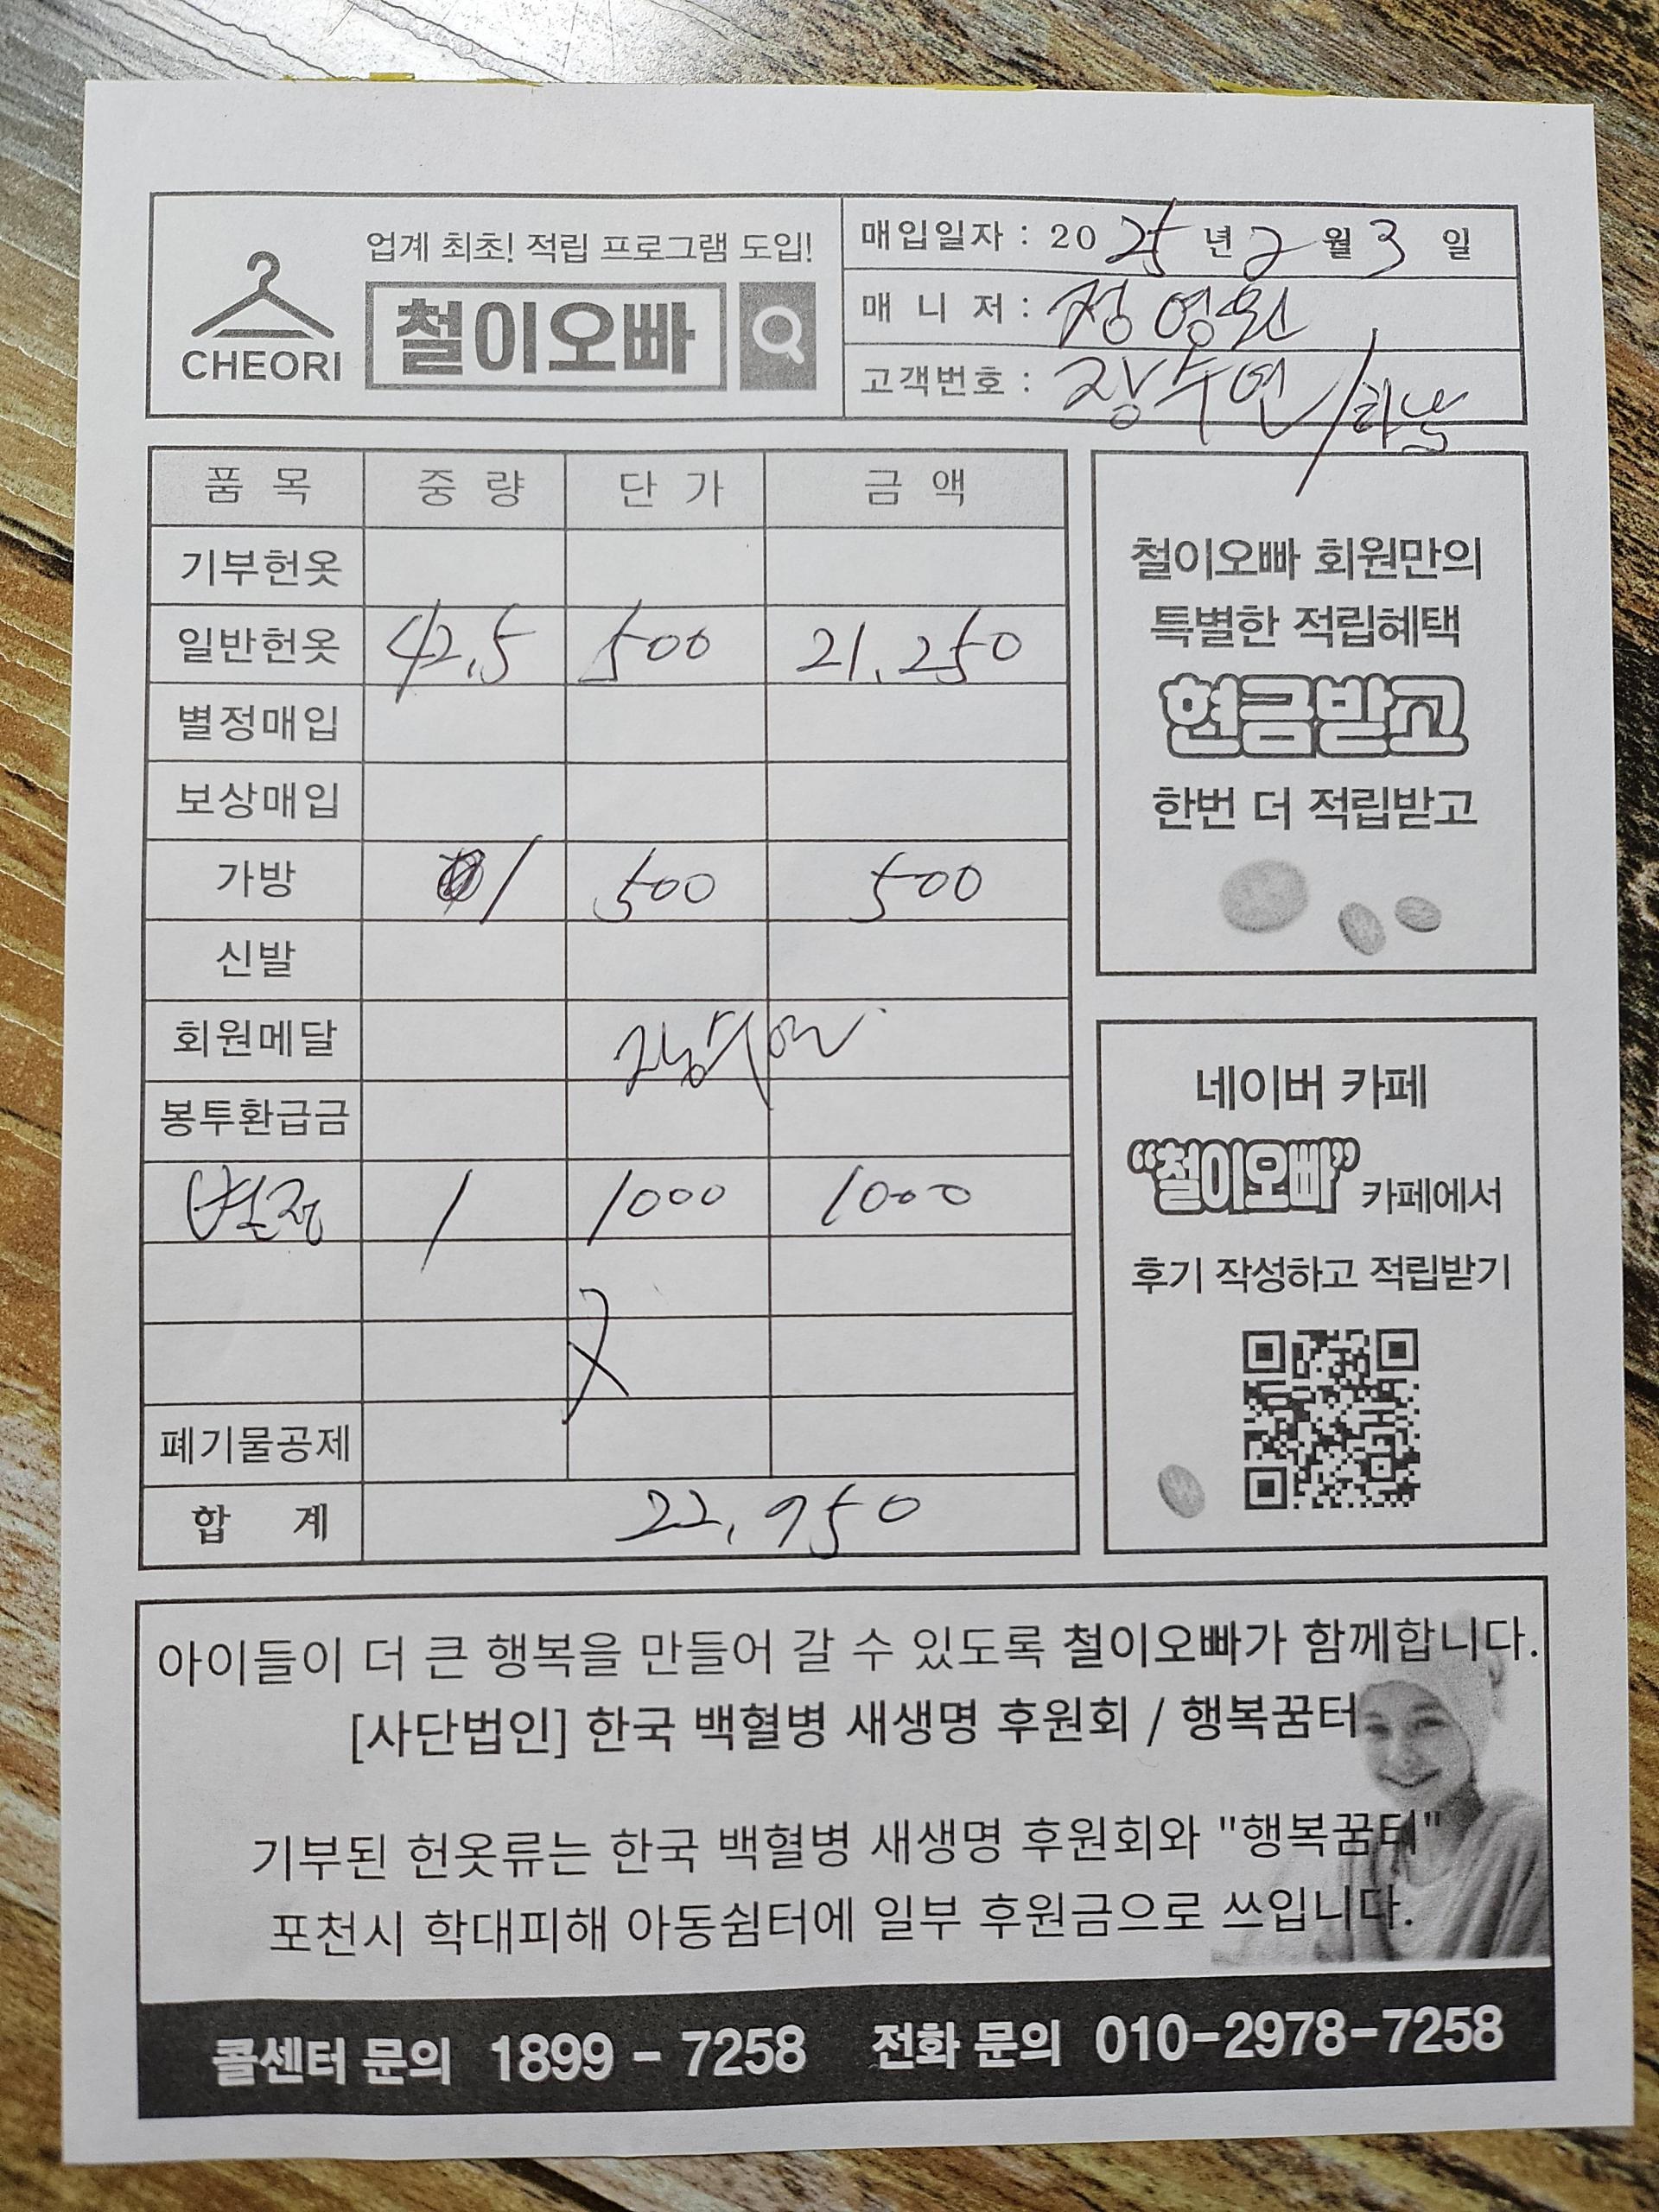 업계 최초! 적립 프로그램 도입!
CHEORI
철이오빠
매입일자 : 2025년 2월 3일
매 니 저 : 정영원
고객번호 : 장수연/하남
품 목 중 량 단 가 금 액
기부헌옷
일반헌옷 42.5 500 21.250
별정매입
보상매입
가방 1 500 500
신발
회원메달 장수연
봉투환급금
별정 1 1000 1000
폐기물공제
합 계 22,950
철이오빠 회원만의
특별한 적립혜택
현금받고
한번 더 적립받고
네이버 카페
“철이오빠” 카페에서
후기 작성하고 적립받기
아이들이 더 큰 행복을 만들어 갈 수 있도록 철이오빠가 함께합니다.
[사단법인] 한국 백혈병 새생명 후원회 / 행복꿈터
기부된 헌옷류는 한국 백혈병 새생명 후원회와 "행복꿈터"
포천시 학대피해 아동쉼터에 일부 후원금으로 쓰입니다.
콜센터 문의 1899 - 7258 전화 문의 010-2978-7258